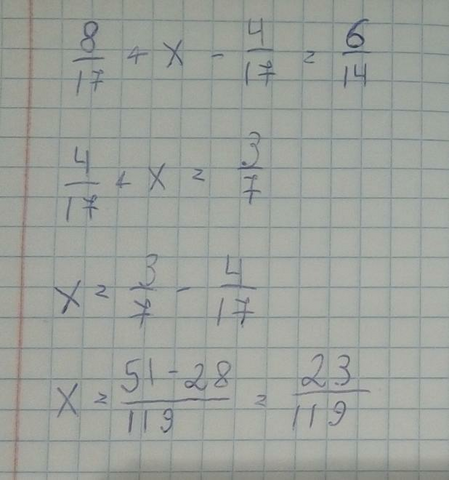 8/17 + x - 4/17 = 6/14
4/17 + x = 3/7
x = 3/7 - 4/17
x = 51-28/119 = 23/119